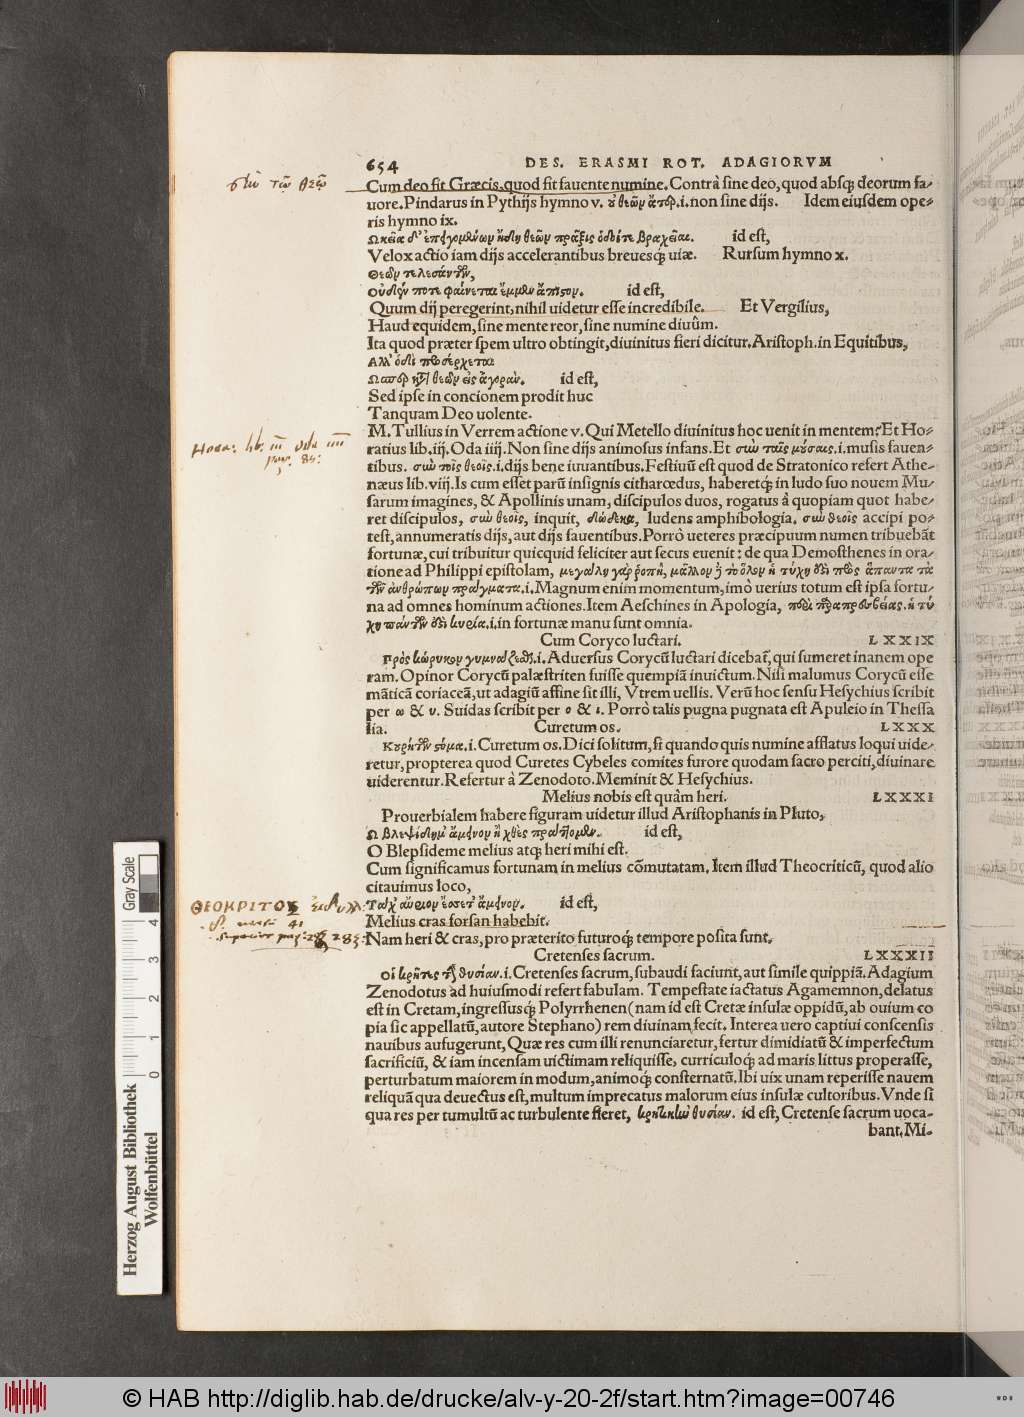 654 DES. ERASMI ROT. ADAGIORVM
σὺν τῷ θεῷ
Cum deo fit Græcis, quod fit fauente numine. Contrà sine deo, quod absq; deorum fa⸗
uore. Pindarus in Pythijs hymno v. οὐ θεῶν ἄτερ .i. non sine dijs. Idem eiusdem ope⸗
ris hymno ix.
Ωκεῖα δ' ἐπειγομένων ἤδη θεῶν πρᾶξις ὁδοί τε βραχεῖαι. id est,
Velox actio iam dijs accelerantibus breuesq; uiæ. Rursum hymno x.
Θεῶν τελεσάντων,
Οὐδέν ποτε φαίνεται ἔμμεν ἄπιστον. id est,
Quum dij peregerint, nihil uidetur esse incredibile. Et Vergilius,
Haud equidem, sine mente reor, sine numine diuûm.
Ita quod præter spem ultro obtingit, diuinitus fieri dicitur. Aristoph. in Equitibus,
Αλλ' ὁδὶ προσέρχεται
Ωσπερ κατὰ θεῶν εἰς ἀγοράν. id est,
Sed ipse in concionem prodit huc
Tanquam Deo uolente.
M. Tullius in Verrem actione v. Qui Metello diuinitus hoc uenit in mentem? Et Ho⸗
Hora: lib. iii oda iiii
ratius lib. iij. Oda iiij. Non sine dijs animosus infans. Et σὺν ταῖς μούσαις .i. musis fauen⸗
tibus. σὺν τοῖς θεοῖς .i. dijs bene iuuantibus. Festiuũ est quod de Stratonico refert Athe⸗
næus lib. viij. Is cum esset parũ insignis citharœdus, haberetq; in ludo suo nouem Mu⸗
sarum imagines, & Apollinis unam, discipulos duos, rogatus à quopiam quot habe⸗
ret discipulos, σὺν θεοῖς, inquit, δώδεκα, ludens amphibologia. σὺν θεοῖς accipi po⸗
test, annumeratis dijs, aut dijs fauentibus. Porrò ueteres præcipuum numen tribuebãt
fortunæ, cui tribuitur quicquid feliciter aut secus euenit: de qua Demosthenes in ora⸗
tione ad Philippi epistolam, μεγάλη γὰρ ῥοπὴ, μᾶλλον δὲ τὸ ὅλον ἡ τύχη ἐστὶ πρὸς ἅπαντα τὰ
τῶν ἀνθρώπων πράγματα .i. Magnum enim momentum, imò uerius totum est ipsa fortu⸗
na ad omnes hominum actiones. Item Aeschines in Apologia, περὶ τῆς παραπρεσβείας. ἡ τύ
χη πάντων ἐστὶ κυρία .i. in fortunæ manu sunt omnia.
Cum Coryco luctari. LXXIX
Πρὸς κώρυκον γυμνάζεσθαι .i. Aduersus Corycũ luctari dicebat̃, qui sumeret inanem ope
ram. Opinor Corycũ palæstriten fuisse quempiã inuictum. Nisi malumus Corycũ esse
mãticã coriaceã, ut adagiũ affine sit illi, Vtrem uellis. Verũ hoc sensu Hesychius scribit
per ω & υ. Suidas scribit per ο & ι. Porrò talis pugna pugnata est Apuleio in Thessa
lia. Curetum os. LXXX
Κουρήτων στόμα .i. Curetum os. Dici solitum, si quando quis numine afflatus loqui uide⸗
retur, propterea quod Curetes Cybeles comites furore quodam sacro perciti, diuinare
uiderentur. Refertur à Zenodoto. Meminit & Hesychius.
Melius nobis est quàm heri. LXXXI
Prouerbialem habere figuram uidetur illud Aristophanis in Pluto,
Ω Βλεψίδημ' ἄμεινον ἢ χθὲς πράττομεν. id est,
O Blepsideme melius atq; heri mihi est.
Cum significamus fortunam in melius cõmutatam. Item illud Theocriticũ, quod alio
citauimus loco,
ΘΕΟΚΡΙΤΟΣ
Τάχ' αὔριον ἔσσετ' ἄμεινον. id est,
41
Melius cras forsan habebit.
Nam heri & cras, pro præterito futuroq; tempore posita sunt.
Cretenses sacrum. LXXXII
Οἱ κρῆτες τὴν θυσίαν .i. Cretenses sacrum, subaudi faciunt, aut simile quippiã. Adagium
Zenodotus ad huiusmodi refert fabulam. Tempestate iactatus Agamemnon, delatus
est in Cretam, ingressusq; Polyrrhenen (nam id est Cretæ insulæ oppidũ, ab ouium co
pia sic appellatũ, autore Stephano) rem diuinam fecit. Interea uero captiui conscensis
nauibus aufugerunt, Quæ res cum illi renunciaretur, fertur dimidiatũ & imperfectum
sacrificiũ, & iam incensam uictimam reliquisse, curriculoq; ad maris littus properasse,
perturbatum maiorem in modum, animoq; consternatũ. Ibi uix unam reperisse nauem
reliquã qua deuectus est, multum imprecatus malorum eius insulæ cultoribus. Vnde si
qua res per tumultũ ac turbulente fieret, κρητικὴν θυσίαν. id est, Cretense sacrum uoca⸗
bant. Mi⸗
Gray Scale
4 3 2 1 0
Herzog August Bibliothek
Wolfenbüttel
© HAB http://diglib.hab.de/drucke/alv-y-20-2f/start.htm?image=00746